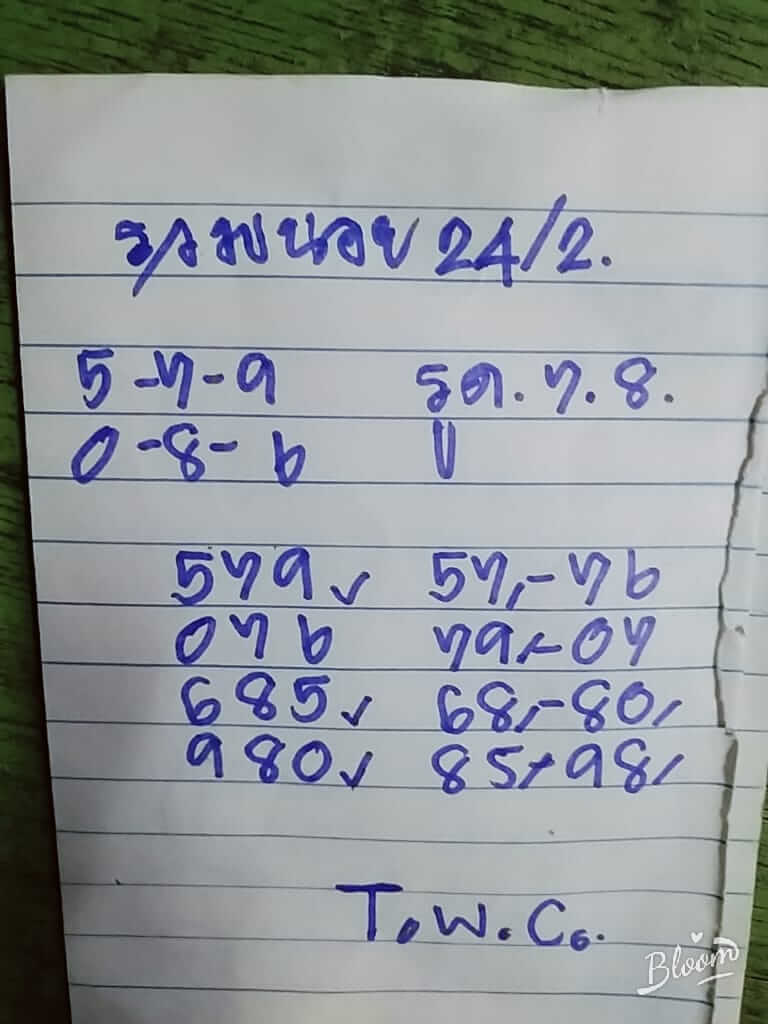 24/2.
5-7-9 รด. 7. 8.
0-8-6 บ
579✓ 57,-76
076 79,-07
685✓ 68,-80,
980✓ 85,-98,
T.W.Co.
Bloom